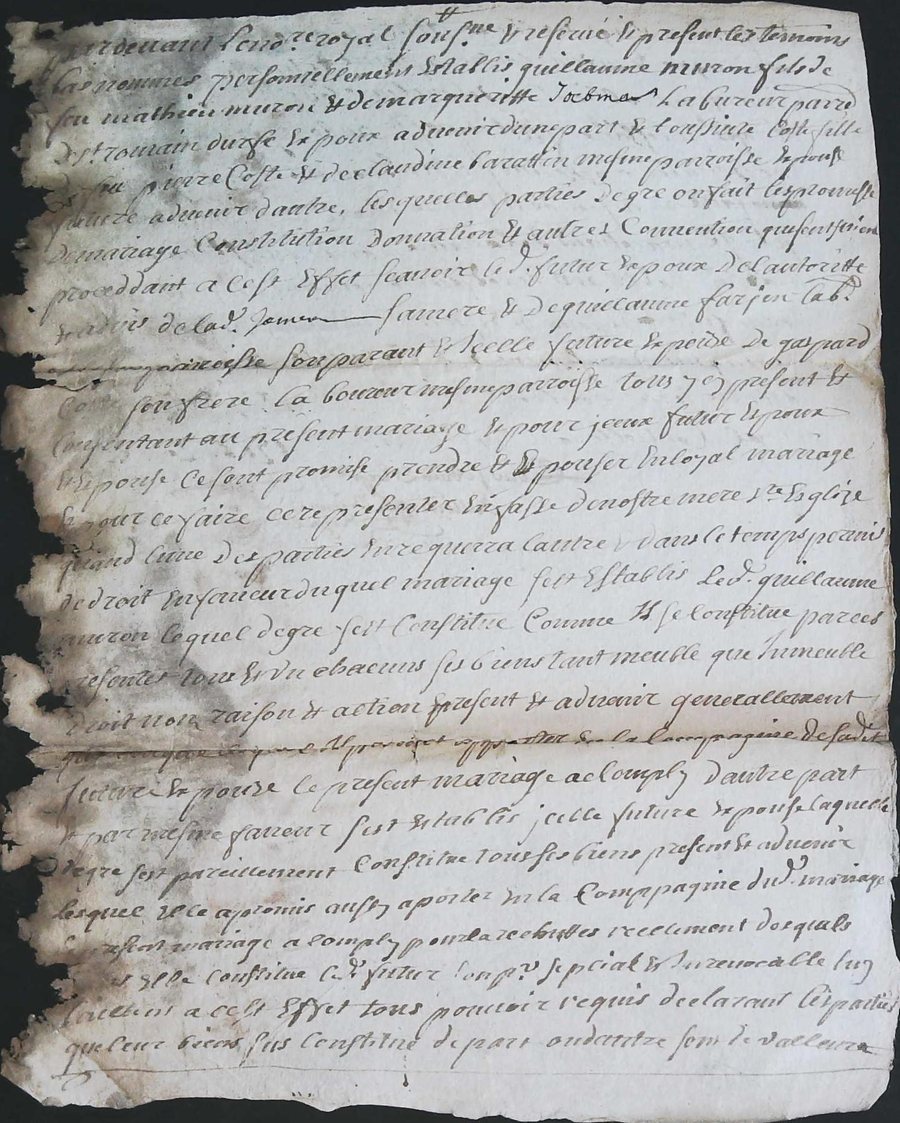 Pardevant le nore royal sousne & reservé & present les temoins
bas nommes personnellement establis guillaume muron fils de
feu mathieu muron & de margueritte Labureur parre
De st romain durfe Espoux advenir dune part & Coste fille
De feu pierre Coste & de claudine barattin mesme parroisse Espouse
future advenir dautre, lesquelles parties de gre on fait les promesse
De mariage Constitution Donnation & autres Convention que sensuiven
proceddant a cest Effet scavoir le d. futur Espoux De lautoritte
& advis de lad. sa mere & De guillaume farjon lab.r
parroisse son parant & Icelle future Espouse De gaspard
Coste son frere laboureur mesme parroisse tous jcy present &
Consentant au present mariage & pour jceux futur Espoux
& Espouse ce sont promise prendre & Espouser En loyal mariage
& pour ce faire ce representer En fasse de nostre mere ste Esglize
quand lune des parties En requerra lautre dans le temps permis
de droit En faveur du quel mariage sest Establis Led. guillaume
muron lequel de gre sest Constitue Comme Il se Constitue par ces
presentes tous & un chacuns ses biens tant meuble que Immeuble
Droit non raison & action present & advenir generallement
la Compagine de sadit
future Espouse le present mariage acomply Dautre part
& par mesme faveur sest Establis jcelle future Espouse laquelle
De gre sest pareillement Constitue tous ses biens present & advenir
Lesquel Elle a promis aussy aporter En la Comppagine dud. mariage
le present mariage acomply pour la recouttes reellement desquels
biens Elle Constitue led. futur son pr. sepcial & Irrevocable luy
a cest Effet tous pouvoir requis declarant les parties
que leur biens sus Constitue de part ou dautre sont de valleur